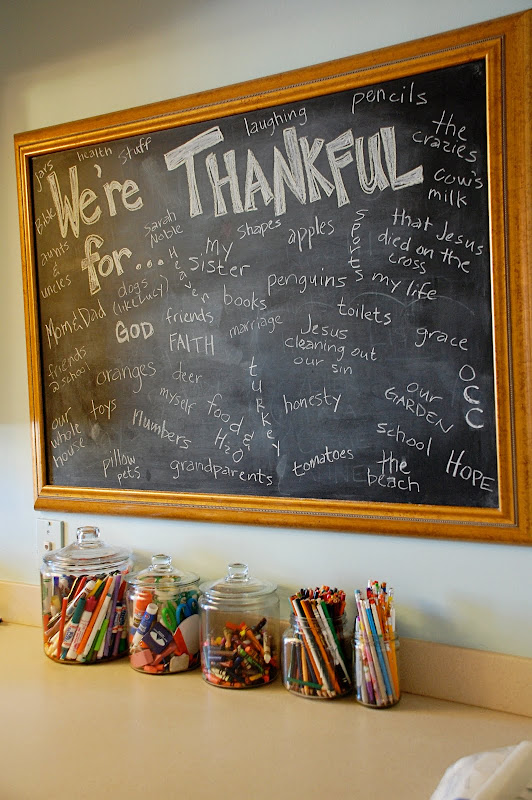 jars
health
stuff
laughing
pencils
the
crazies
We're THANKFUL
for...
cow's
milk
Bible
aunts
&
uncles
Sarah
Noble
Heaven
My
Sister
shapes
apples
Sports
that Jesus
died on the
cross
dogs
(like Lucy)
books
penguins
my life
Mom & Dad
GOD
friends
FAITH
marriage
Jesus
cleaning out
our sin
toilets
grace
friends
@ school
oranges
deer
turkey
OCC
myself
food &
H2O
honesty
our
GARDEN
our
whole
house
toys
numbers
school
pillow
pets
grandparents
tomatoes
the
beach
HOPE